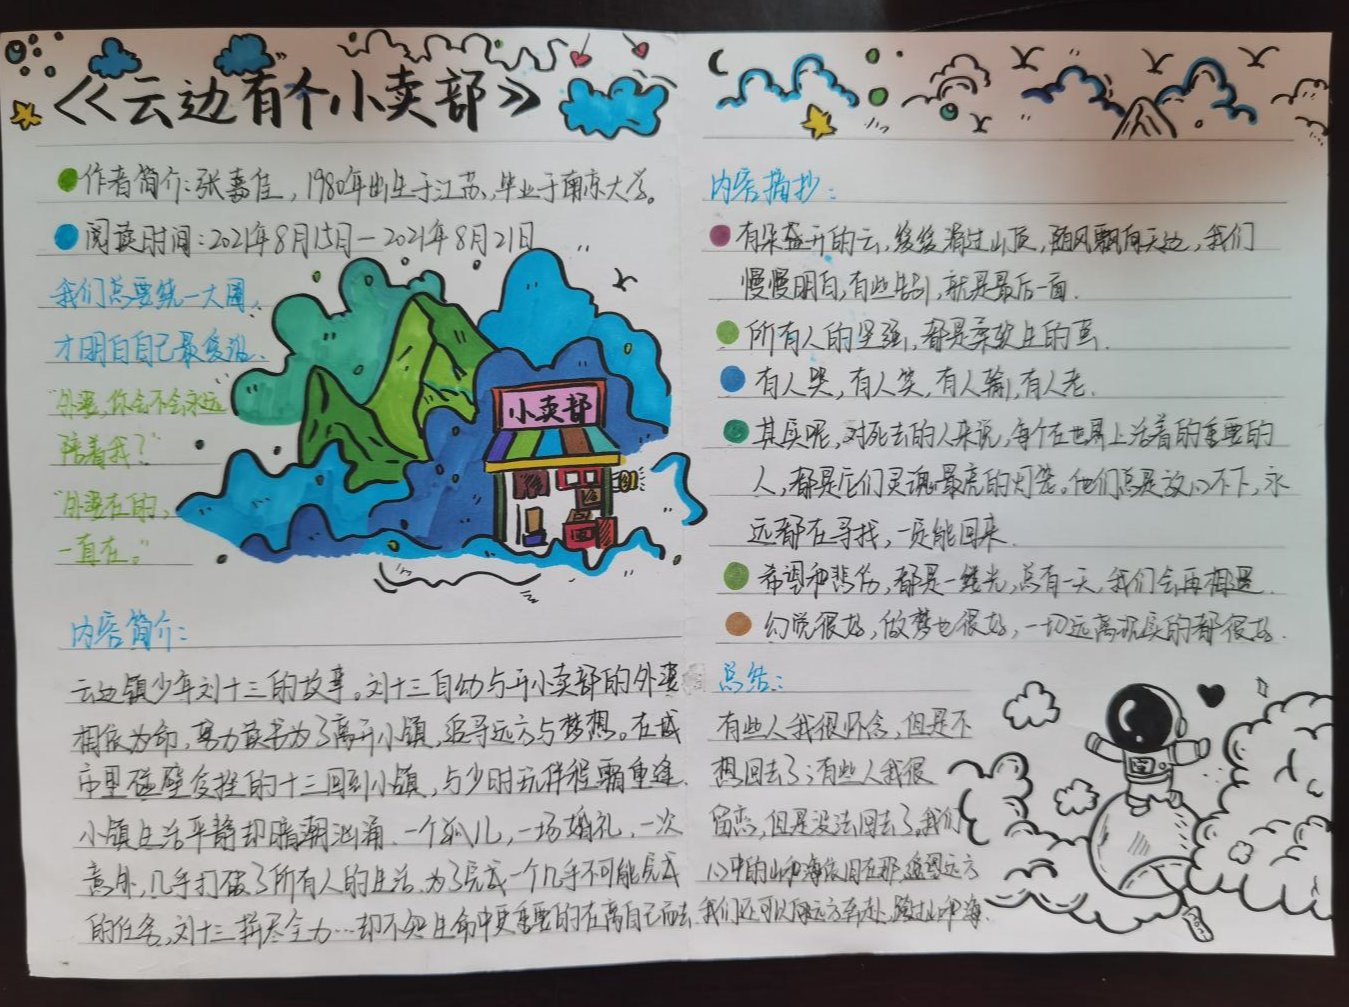 《云边有个小卖部》
作者简介:张嘉佳,1980年出生于江苏,毕业于南京大学。
阅读时间:2021年8月15日—2021年8月21日
我们总要绕一大圈,
才明白自己最爱谁.
"外婆,你会不会永远
陪着我?"
"外婆在的,
一直在。"
小卖部
内容简介:
云边镇少年刘十三的故事。刘十三自幼与开小卖部的外婆
相依为命,努力读书为了离开小镇,追寻远方与梦想。在城
市里碰壁受挫的十三回到小镇,与少时玩伴程霜重逢.
小镇生活平静却暗潮汹涌.一个孤儿,一场婚礼,一次
意外,几乎打破了所有人的生活.为了完成一个几乎不可能完成
的任务,刘十三拼尽全力…却不知生命中更重要的在离自己而去.
内容摘抄:
有朵盛开的云,缓缓滑过山顶,随风飘向天边,我们
慢慢明白,有些告别,就是最后一面.
所有人的坚强,都是柔软生的茧.
有人哭,有人笑,有人输,有人老.
其实呢,对死去的人来说,每个在世界上活着的重要的
人,都是它们灵魂最亮的灯笼。他们总是放心不下,永
远都在寻找,一只能回来.
希望和悲伤,都是一缕光,总有一天,我们会再相遇.
幻觉很好,做梦也很好,一切远离现实的都很好.
总结:
有些人我很怀念,但是不
想回去了;有些人我很
留恋,但是没法回去了。我们
心中的山和海依旧在那,追寻远方
我们还可以向远方奔赴,踏过山和海.